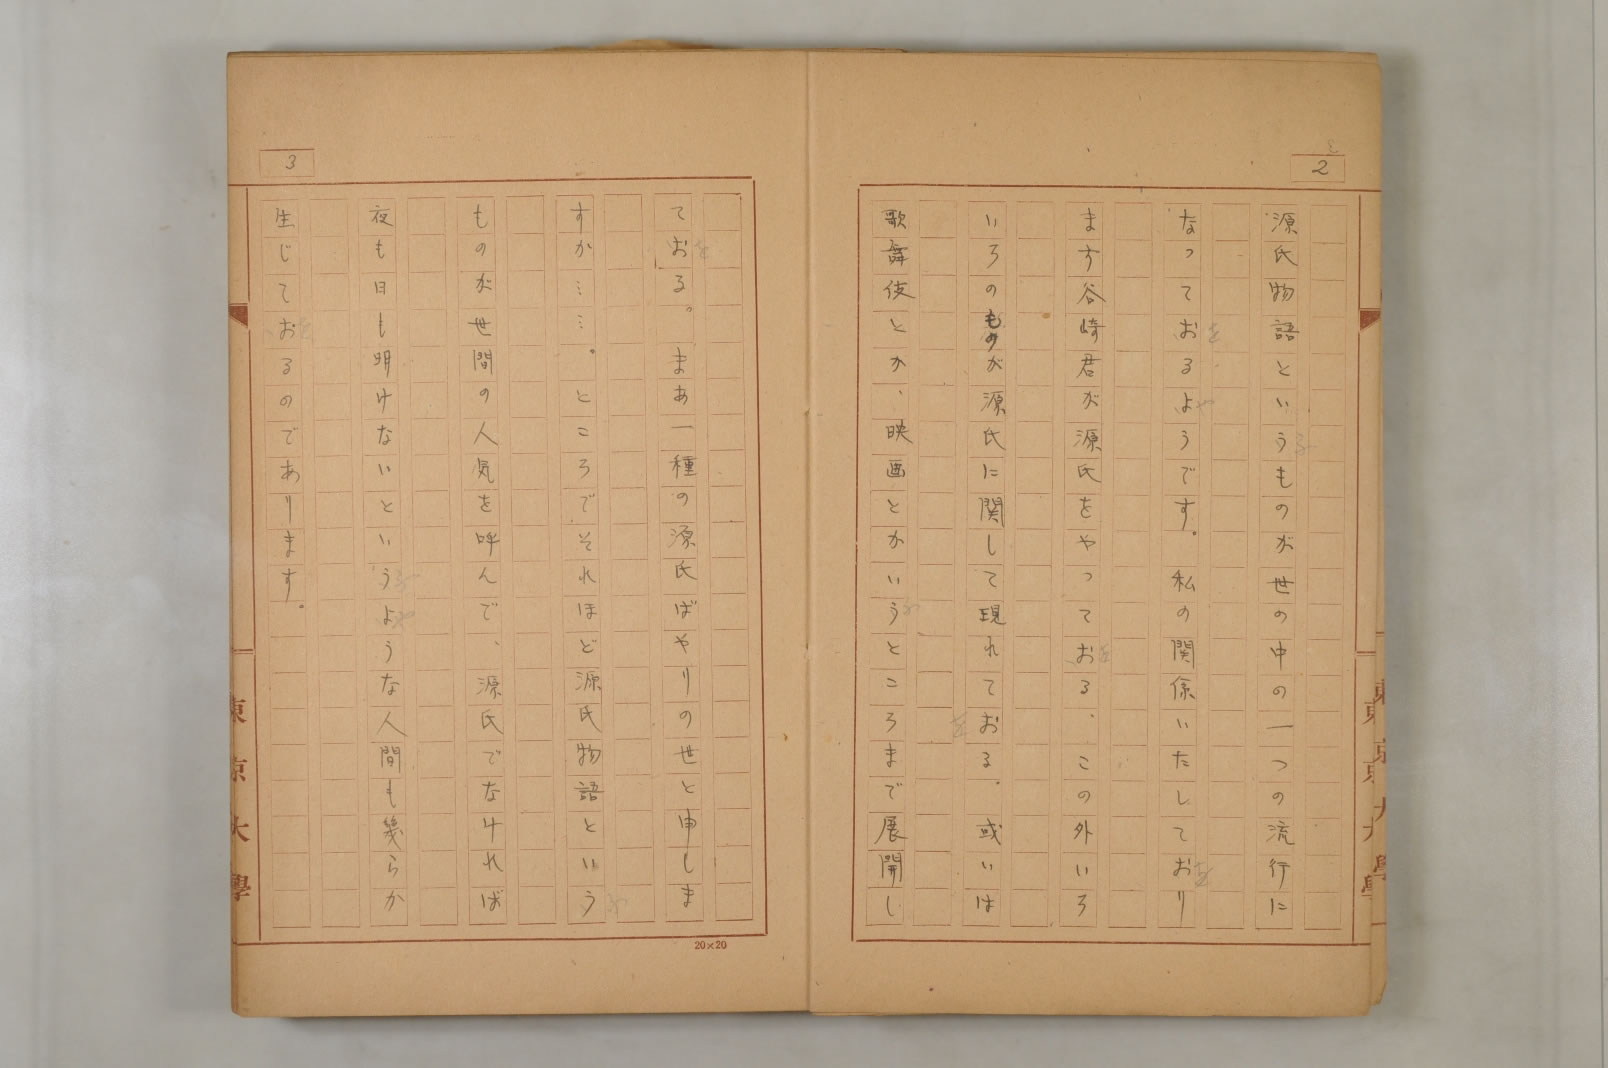 2
源氏物語というものが世の中の一つの流行に
なっておるようです。私の関係いたしており
ます谷崎君が源氏をやっておる、この外いろ
いろのものが源氏に関して現れておる。或いは
歌舞伎とか、映画とかいうところまで展開し
3
ておる。まあ一種の源氏ばやりの世と申しま
すか……。ところでそれほど源氏物語という
ものが世間の人気を呼んで、源氏でなければ
夜も日も明けないというような人間も幾らか
生じておるのであります。
20×20
東京大學
東京大學